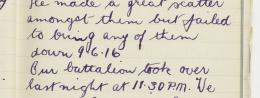 He made a great scatter
amongst them but failed
to bring any of them
down 9.6.16
Our battalion took over
last night at 11.30 P.M. We